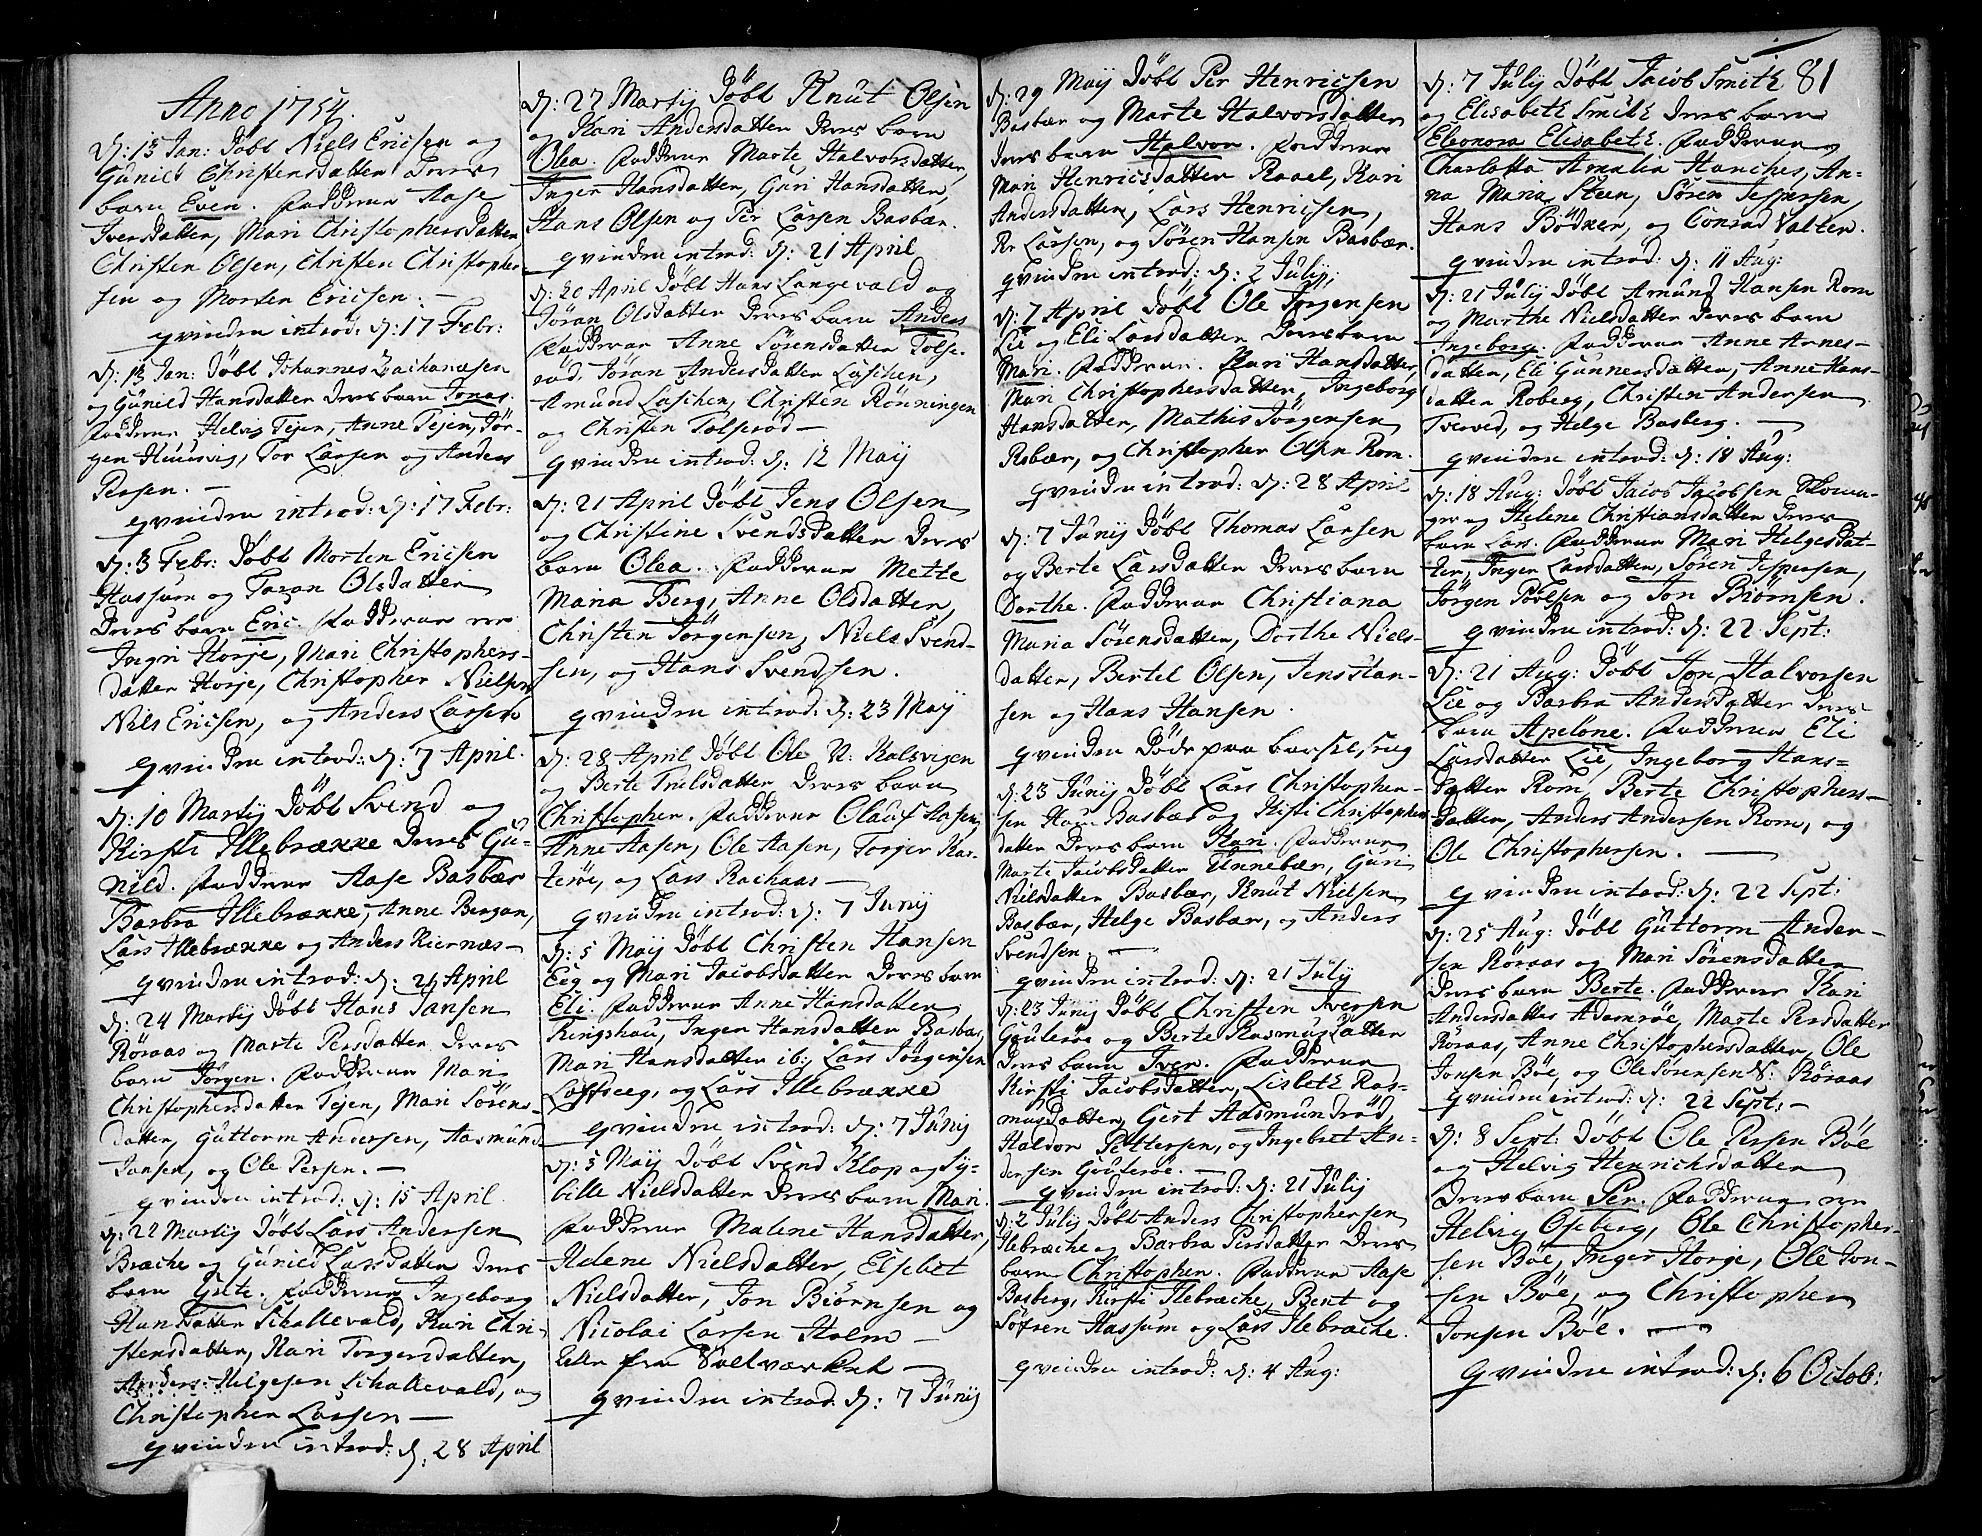 Anno 1754.
d: 13 Jan: döbt Niels Ericsen og
Gunild Christensdatter deres
barn Even. Fadderne Aase
Iversdatter, Mari Christophersdatter
Christen Olsen, Christen Christopher-
sen og Morten Ericsen. —
qvinden introd: d: 17 Febr:
d: 13 Jan: döbt Johannes Zachariasen
og Gunild Hansdatter deres barn Jonas.
Fadderne Helvig Tejen, Anne Tejen, Jör-
gen Huusvig, Tor Larsen og Anders
Persen. —
qvinden introd: d: 17 Febr:
d: 3 Febr: döbt Morten Ericsen
Hassum og Taran Olsdatter
deres barn Eric. Fadderne
Ingri Horje, Mari Christophers-
datter Horje, Christopher Nielsen
Nils Ericsen, og Anders Larsen
qvinden introd: d: 7 April.
d: 10 Martij döbt Svend og
Kirsti Illebrække deres Gu-
nild. Fadderne Aase Basbær
Barbra Illebrække, Anne Bergan,
Lars Illebrække og Anders Kiernæs —
qvinden introd: d: 21 April
d: 24 Martij döbt Hans Jansen
Röraas og Marte Persdatter deres
barn Jörgen. Fadderne Mari
Christophersdatter Tejen, Mari Sörens-
datter, Guttorm Andersen, Aasmund
Jansen, og Ole Persen. —
qvinden introd: d: 15 April.
d: 22 Martij döbt Lars Andersen
Bræche og Gunild Larsdatter deres
barn Gute. Fadderne Ingeborg
Hansdatter Schallevald, Kari Chri-
stensdatter, Kari Torgersdatter,
Anders Helgesen Schallevald, og
Christopher Larsen —
qvinden introd: d: 28 April
d: 27 Martij döbt Knut Olsen
og Kari Andersdatter deres barn
Olea. Fadderne Marte Halvorsdatter,
Inger Hansdatter, Guri Hansdatter,
Hans Olsen og Per Larsen Basbær.
qvinden introd: d: 21 April
d: 20 April döbt Hans Langevald og
Jöran Olsdatter deres barn Anders
Fadderne Anne Sörensdatter Tolse-
röd, Jöran Andersdatter Laschen,
Amund Laschen, Christen Rönningen
og Christen Tolseröd —
qvinden introd: d: 12 Maij
d: 21 April döbt Jens Olsen
og Christine Svendsdatter deres
barn Olea. Fadderne Mette
Maria Berg, Anne Olsdatter,
Christen Jörgensen, Niels Svend-
sen, og Hans Svendsen.
qvinden introd: d: 23 Maij
d: 28 April döbt Ole N: Kalsvigen
og Berte Trulsdatter deres barn
Christopher. Fadderne Olauf Aasen,
Anne Aasen, Ole Aasen, Torger Kas-
teröe, og Lars Rachaas —
qvinden introd: d: 7 Junij
d: 5 Maij döbt Christen Hansen
Eeg og Mari Jacobsdatter deres barn
Eli. Fadderne Anne Hansdatter
Ringshau, Inger Hansdatter Basbær,
Mari Hansdatter ib; Lars Jörgensen
Loffseeg, og Lars Illebrække
qvinden introd: d: 7 Junij
d: 5 Maij döbt Svend Klop og Sy-
bille Nielsdatter deres barn Mari.
Fadderne Malene Hansdatter,
Helene Nielsdatter, Elsebet
Nielsdatter, Jon Biörnsen og
Nicolai Larsen Holm —
alle fra Valværket —
qvinden introd: d: 7 Junij
d: 29 Maij döbt Per Henricsen
Basbær og Marte Halvorsdatter
deres barn Halvor. Fadderne
Mari Henricsdatter Raael, Kari
Andersdatter, Lars Henricsen,
Per Larsen, og Sören Hansen Basbær.
qvinden introd: d: 2 Julij;
d: 7 April döbt Ole Jörgensen
Lie og Eli Larsdatter deres barn
Mari. Fadderne Kari Hansdatter,
Mari Christophersdatter, Ingeborg
Hansdatter, Mathis Jörgensen
Rsbær, og Christopher Olsen Rom.
qvinden introd: d: 28 April
d: 7 Junij döbt Thomas Larsen
og Berte Larsdatter deres barn
Dorthe. Fadderne Christiana
Maria Sörensdatter, Dorthe Niels-
datter, Bertel Olsen, Jens Han-
sen og Hans Hansen.
qvinden döde paa barselseng
d: 23 Junij döbt Lars Christopher-
sen Basbær og Kirsti Christopher-
datter deres barn Kari. Fadderne
Marte Jacobsdatter Unnebær, Guri
Nielsdatter Basbær, Knut Nielsen
Basbær, Helge Basbær, og Anders
Svendsen. —
qvinden introd: d: 21 July
d: 23 Junij döbt Christen Iversen
Gouteröe og Berte Rasmusdatter
deres barn Iver. Fadderne
Kirsti Jacobsdatter, Lisbeth Ras-
musdatter, Gert Aasmundröd,
Haldor Pettersen, og Ingebret An-
dersen Gouteröe. —
qvinden introd: d: 21 Julij
d: 2 Julij döbt Anders Christophersen
Ilebræche og Barbra Persdatter deres
barn Christopher. Fadderne Aase
Basberg, Kirsti Ilebræche, Bent og
Söfren Hassum og Lars Ilebræche.
qvinden introd: d: 4 Aug:
81
d: 7 Julij döbt Jacob Smith
og Elisabeth Smith deres barn
Eleonora Elisabeth. Fadderne
Charlotta Amalia Hanches, An-
na Maria Steen, Sören Jespersen,
Hans Bödker, og Conrad Valter.
qvinden introd: d: 11 Aug:
d: 21 Julij döbt Amund Hansen Rom
og Marthe Nielsdatter deres barn
Ingeborg. Fadderne Anne Arnes-
datter, Eli Gunnersdatter, Anne Hans-
datter Roberg, Christen Andersen
Tverved, og Helge Basberg. —
qvinden introd: d: 18 Aug:
d: 18 Aug: döbt Jacob Jacobsen Skoma-
ger og Helene Christiansdatter deres
barn Lars. Fadderne Mari Helgesdat-
ter, Inger Larsdatter, Sören Jespersen,
Jörgen Povelsen og Jon Biörnsen.
qvinden introd: d: 22 Sept:
d: 21 Aug: döbt Jon Halvorsen
Lie og Barbra Andersdatter deres
barn Apelone. Fadderne Eli
Larsdatter Lie, Ingeborg Hans-
datter Rom, Berte Christophers-
datter, Anders Andersen Rom, og
Ole Christophersen. —
qvinden introd: d: 22 Sept:
d: 25 Aug: döbt Guttorm Ander-
sen Röraas og Mari Sörensdatter
deres barn Berte. Fadderne Kari
Andersdatter Adamröe, Marte Persdatter
Röraas, Anne Christophersdatter, Ole
Jonsen Böe, og Ole Sörensen N: Röraas
qvinden introd: d: 22 Sept: —
d: 8 Sept: döbt Ole Persen Böe
og Helvig Henrichsdatter
deres barn Per. Fadderne
Helvig Oseberg, Ole Christopher-
sen Böe, Inger Horge, Ole Jon-
sen Böe, og Christopher
Jonsen Böe. —
qvinden introd: d: 6 Octob: